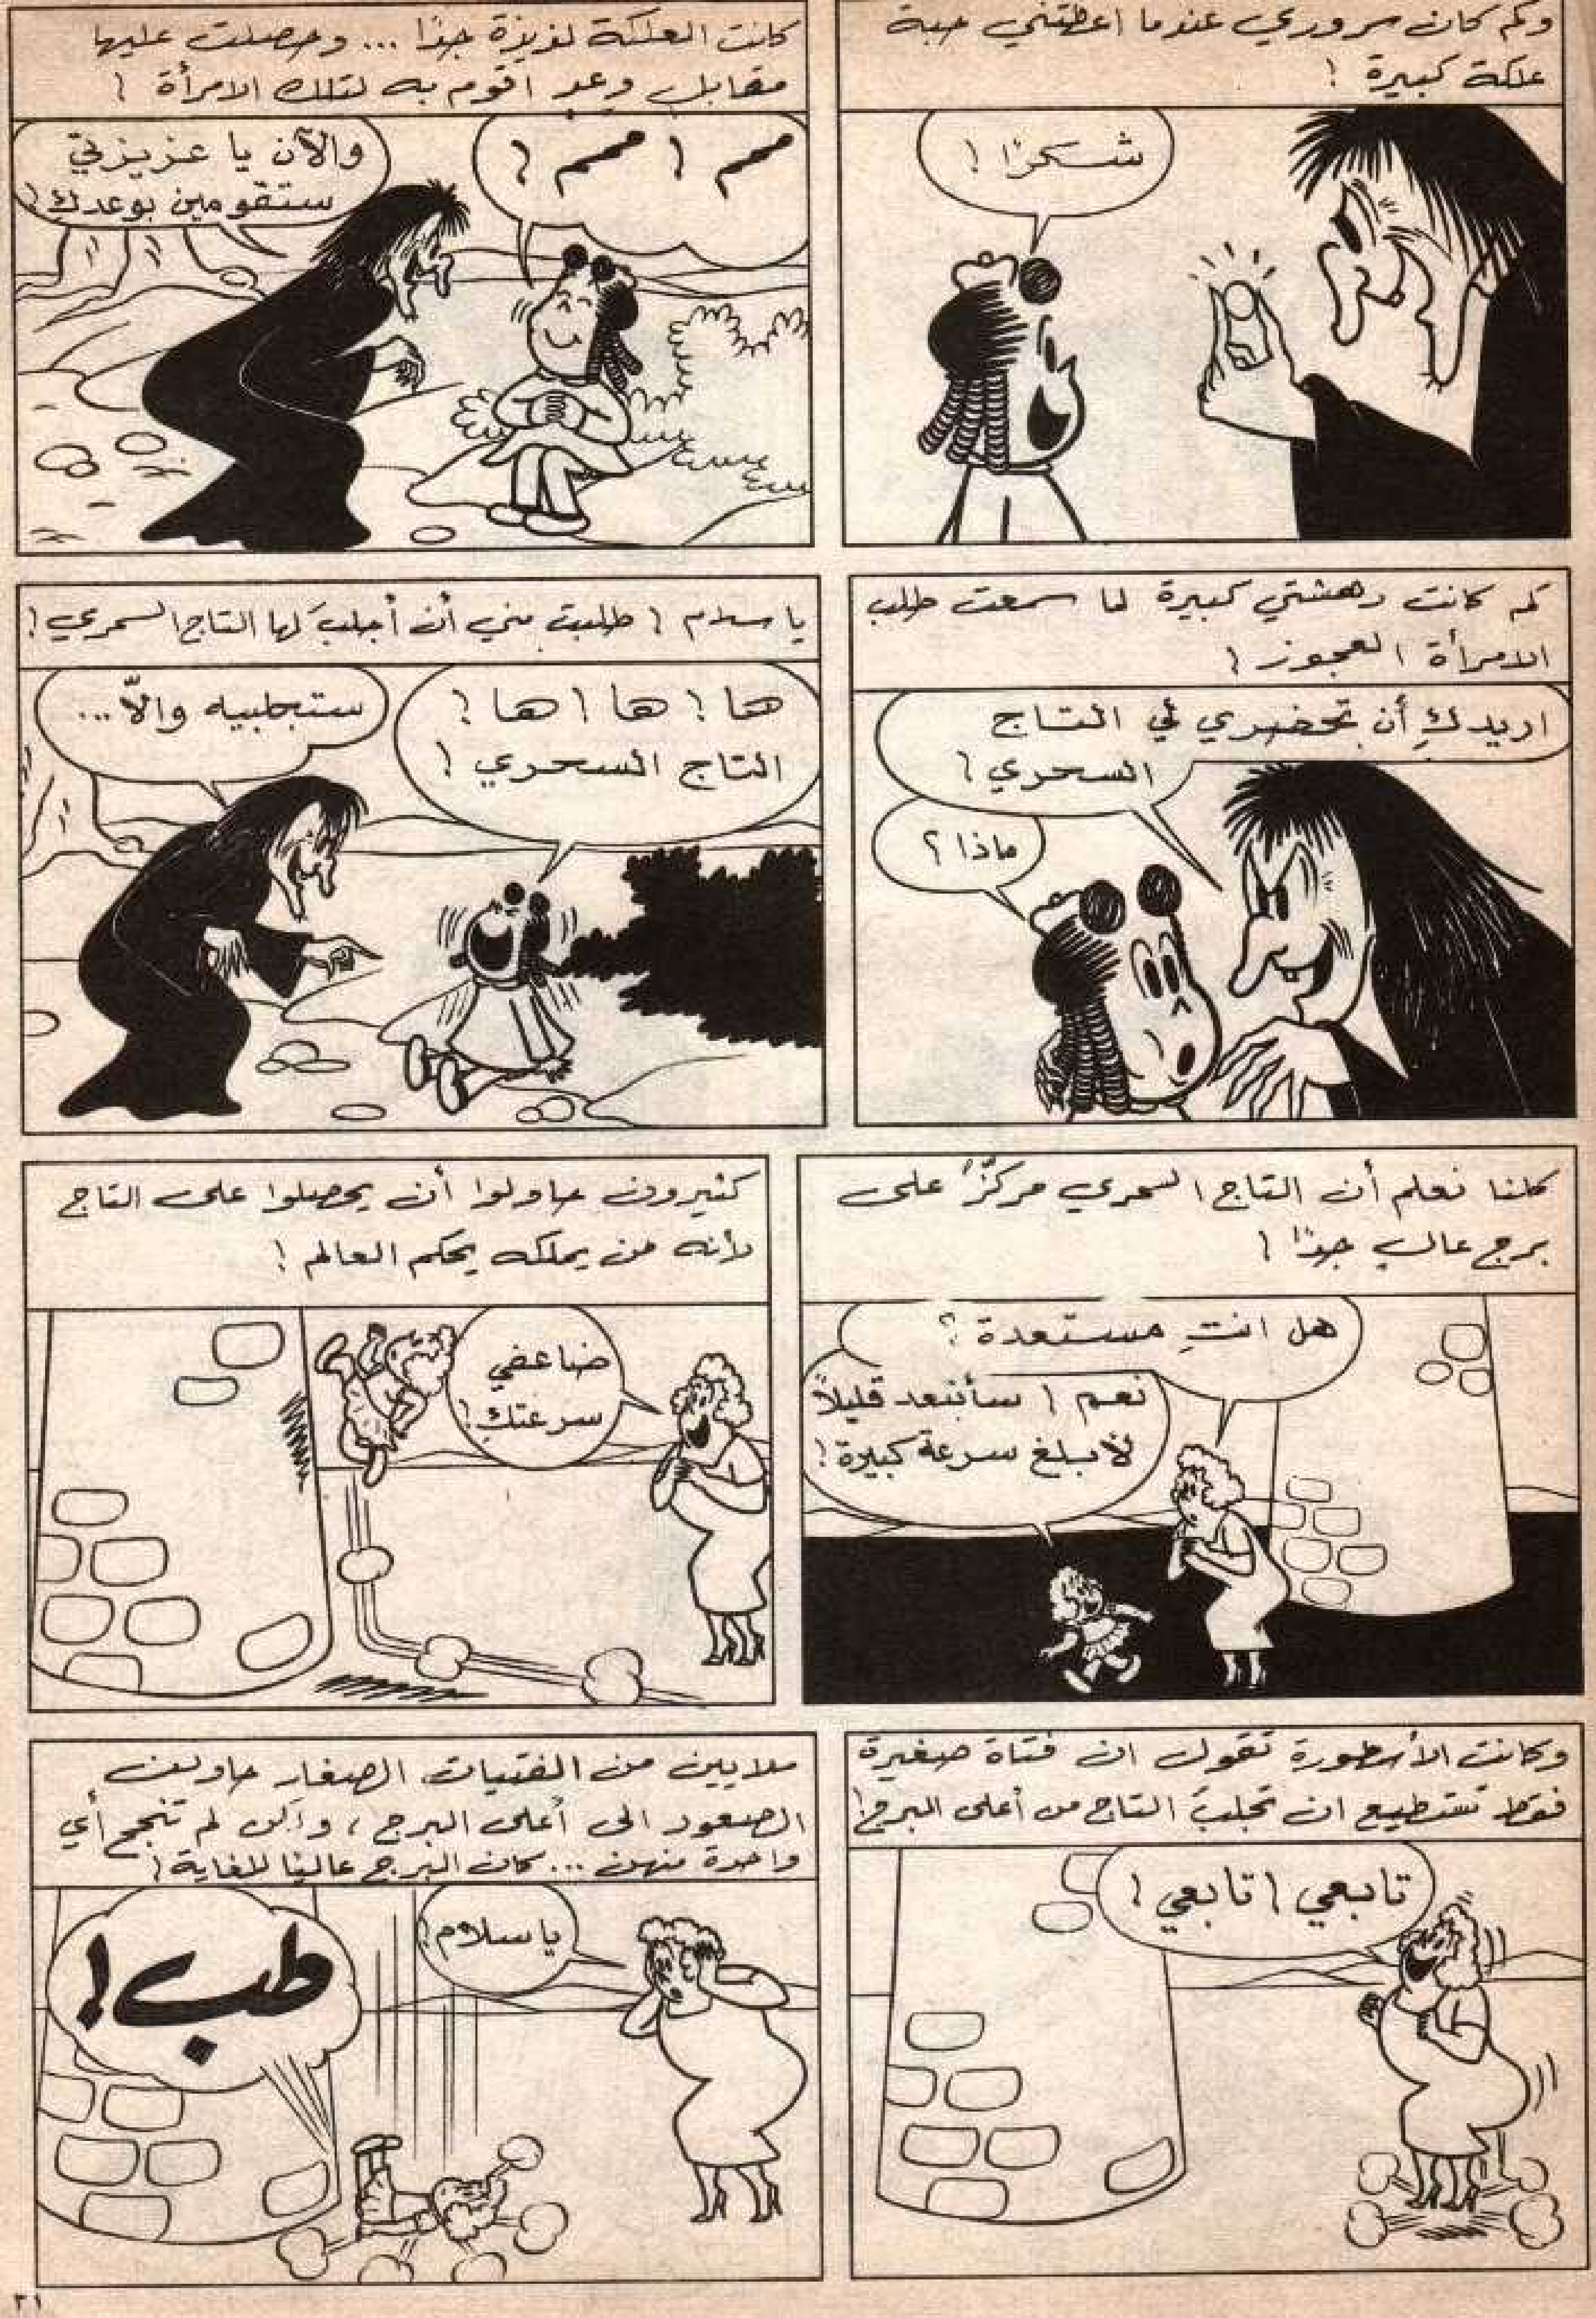 وكم كان سروري عندما اعطتني حبة
علكة كبيرة !
شكرًا !
كانت العلكة لذيذة جدًا ... وحصلت عليها
مقابل وعد اقوم به لتلك الامرأة !
مم ! مم !
والآن يا عزيزتي
ستقومين بوعدك !
كم كانت دهشتي كبيرة لما سمعت طلب
الامرأة العجوز !
اريدكِ أن تحضري لي التاج
السحري !
ماذا ؟
يا سلام ! طلبت مني أن أجلبَ لها التاج السحري !
ها ! ها ! ها !
التاج السحري !
ستجلبيه والاّ ...
كلنا نعلم أن التاج السحري مركّزٌ على
برج عالٍ جدًا !
هل انتِ مستعدة ؟
نعم ! سأبتعد قليلاً
لأبلغ سرعة كبيرة !
كثيرون حاولوا أن يحصلوا على التاج
لأنه من يملكه يحكم العالم !
ضاعفي
سرعتكِ !
وكانت الأسطورة تقول ان فتاة صغيرة
فقط تستطيع ان تجلبَ التاج من أعلى البرج !
تابعي ! تابعي !
ملايين من الفتيات الصغار حاولن
الصعود الى أعلى البرج ، ولكن لم تنجح أي
واحدة منهن ... كان البرج عاليًا للغاية !
يا سلام !
طب !
٣١